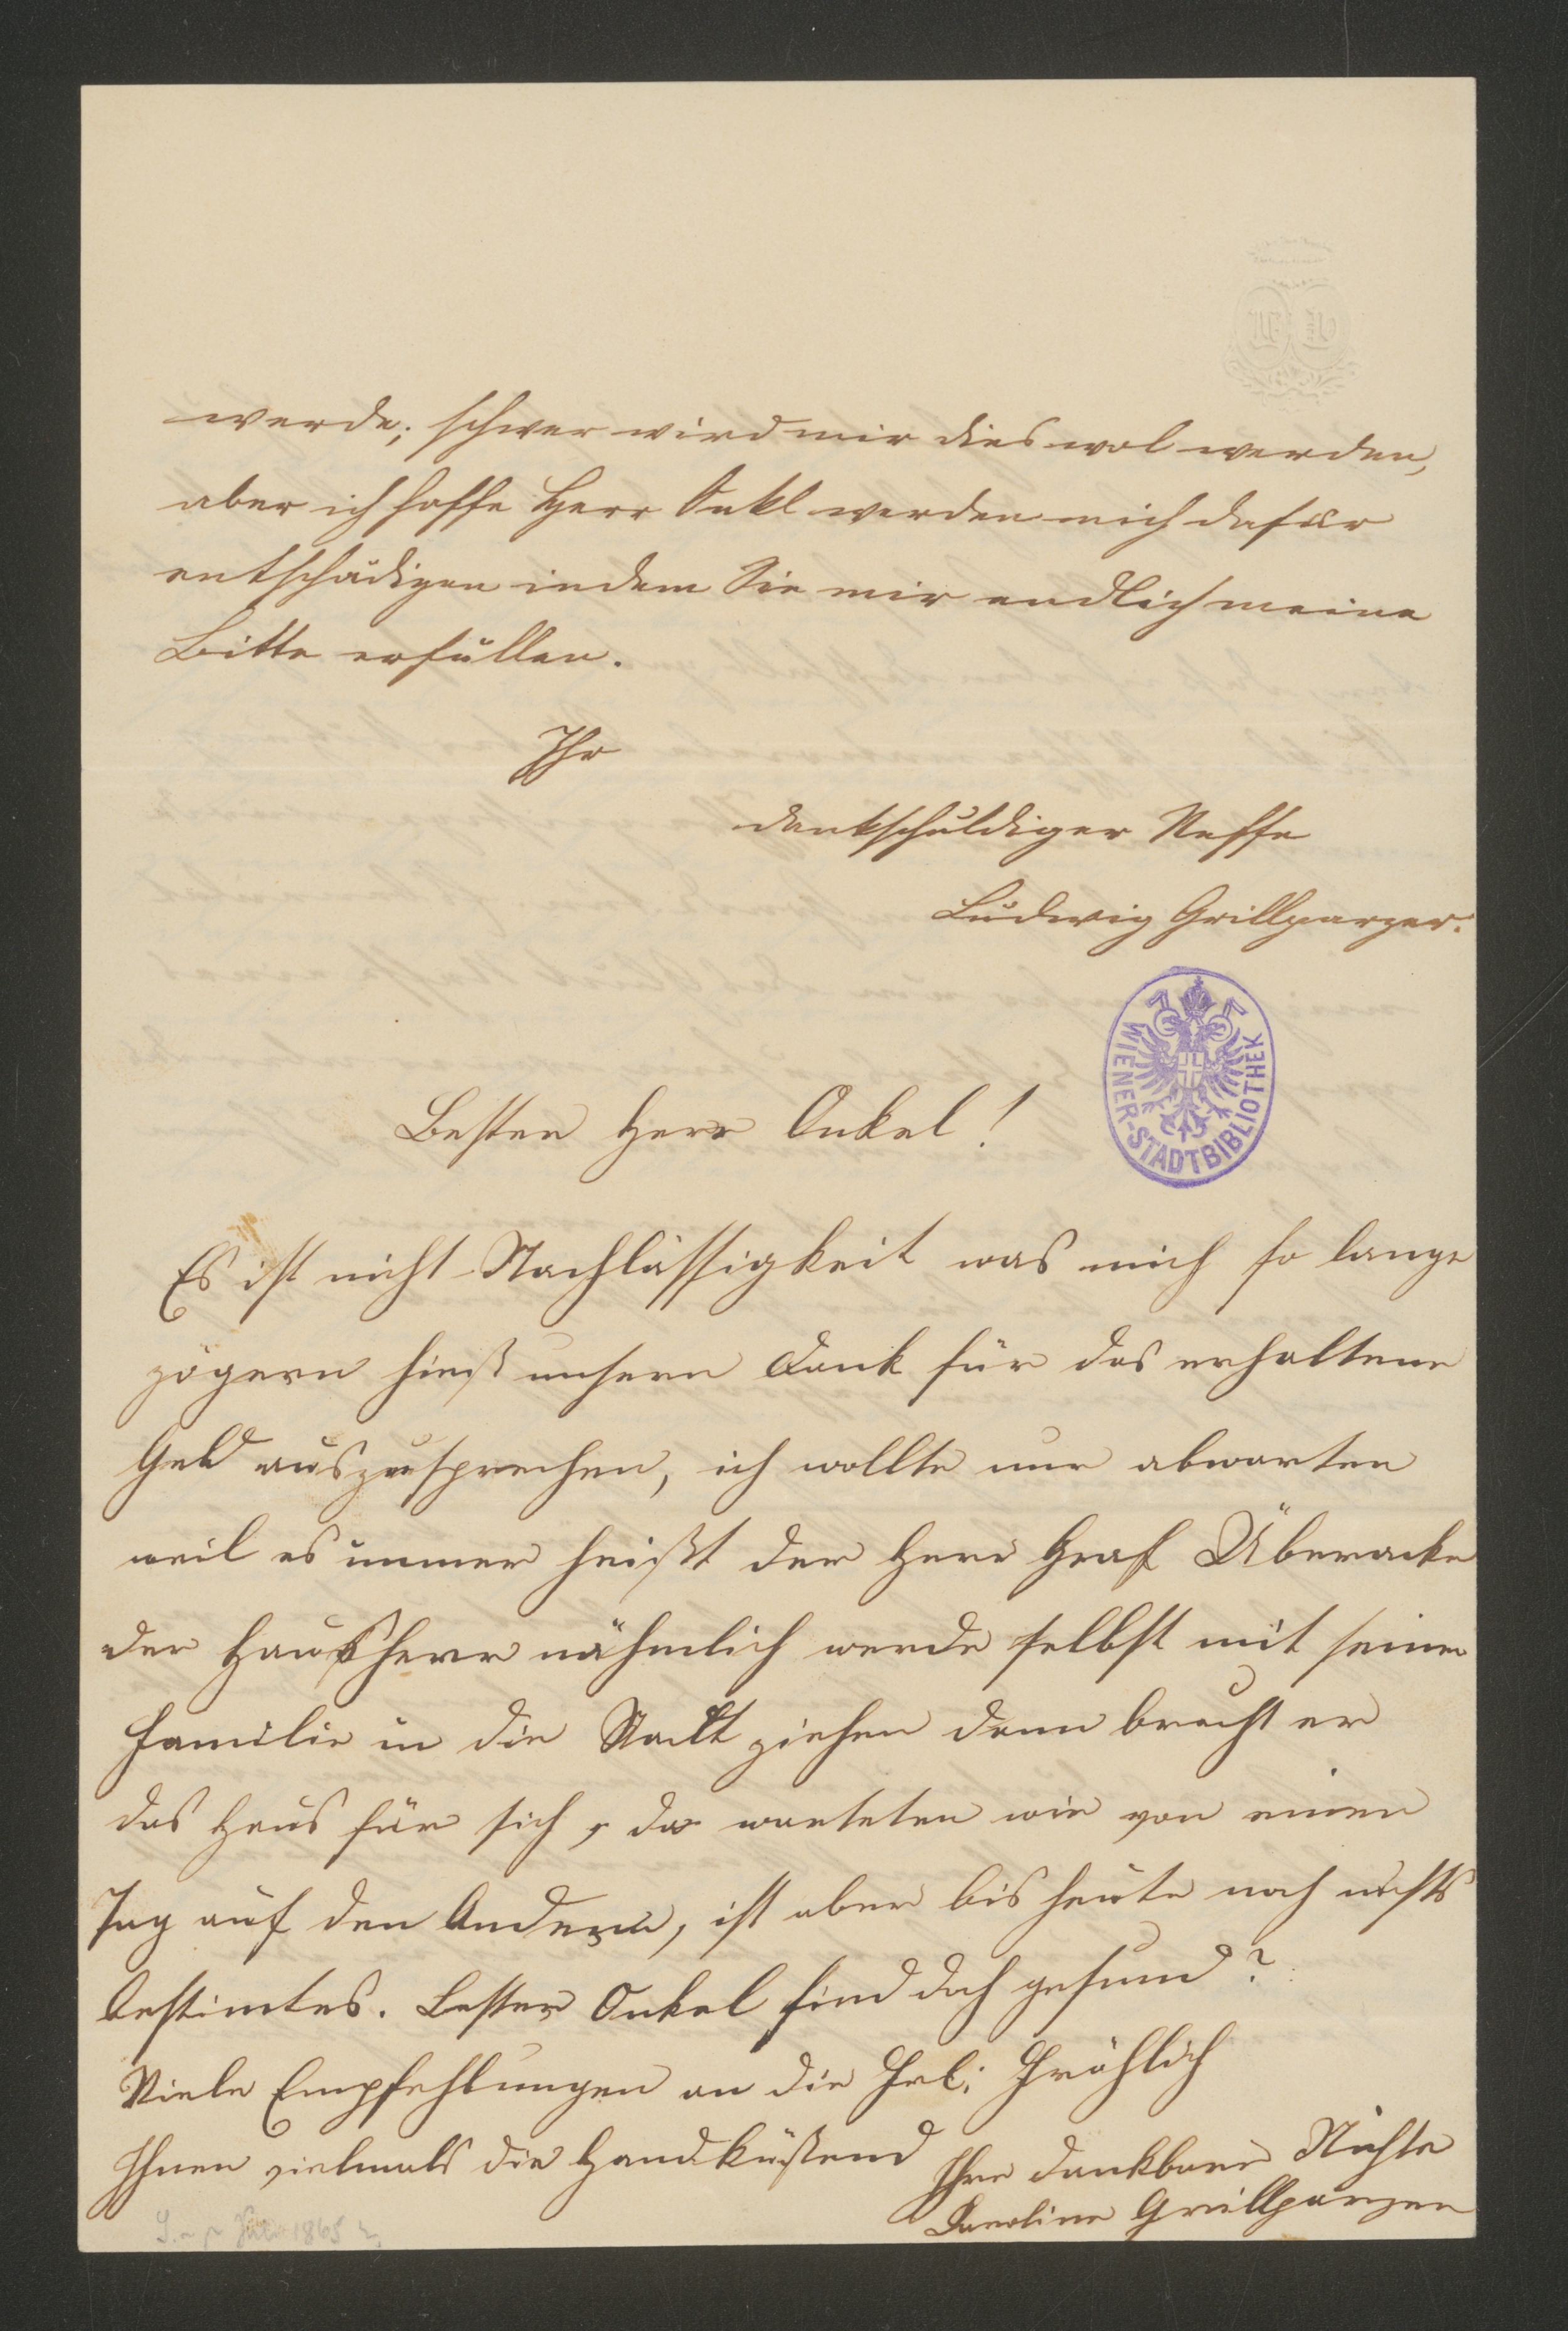 werde; schwer wird mir dies wol werden,
aber ich hoffe Herr Onkl werden mich dafür
entschädigen indem Sie mir endlich meine
Bitte erfüllen.
Ihr
dankschuldiger Neffe
Ludwig Grillparzer.
WIENER-STADTBIBLIOTHEK
Bester Herr Onkel!
Es ist nicht Nachlässigkeit was mich so lange
zögern hieß unsern Dank für das erhaltene
Geld auszusprechen, ich wollte nur abwarten
weil es immer heißt der Herr Graf Überacke
der Hausherr nähmlich werde selbst mit seiner
Familie in die Stadt ziehen dann braucht er
das Haus für sich, da warteten wir von einen
Tag auf den Andern, ist aber bis heute noch nichts
bestimtes. Bester Onkel sind doch gesund?
Viele Empfehlungen an die Frl: Fröhlich
Ihnen vielmals die Handküßend Ihre dankbare Nichte
Caroline Grillparzer
1865